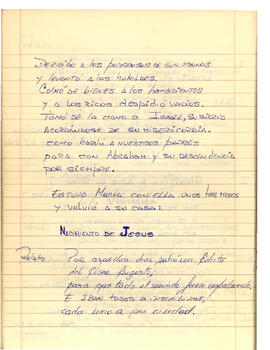 Derribó a los poderosos de sus tronos
y levantó a los humildes.
Colmó de bienes a los hambrientos
y a los ricos despidió vacíos.
Tomó de la mano a Israel, su siervo
acordándose de su misericordia.
como habló a nuestros padres
para con Abraham y su descendencia
por siempre.
Estuvo María con ella unos tres meses
y volvió a su casa:
Nacimiento de Jesus
Relato: Por aquellos días salió un Edicto
del César Augusto,
para que todo el mundo fuese empadronado.
E Iban todos a inscribirse,
cada uno a su ciudad.